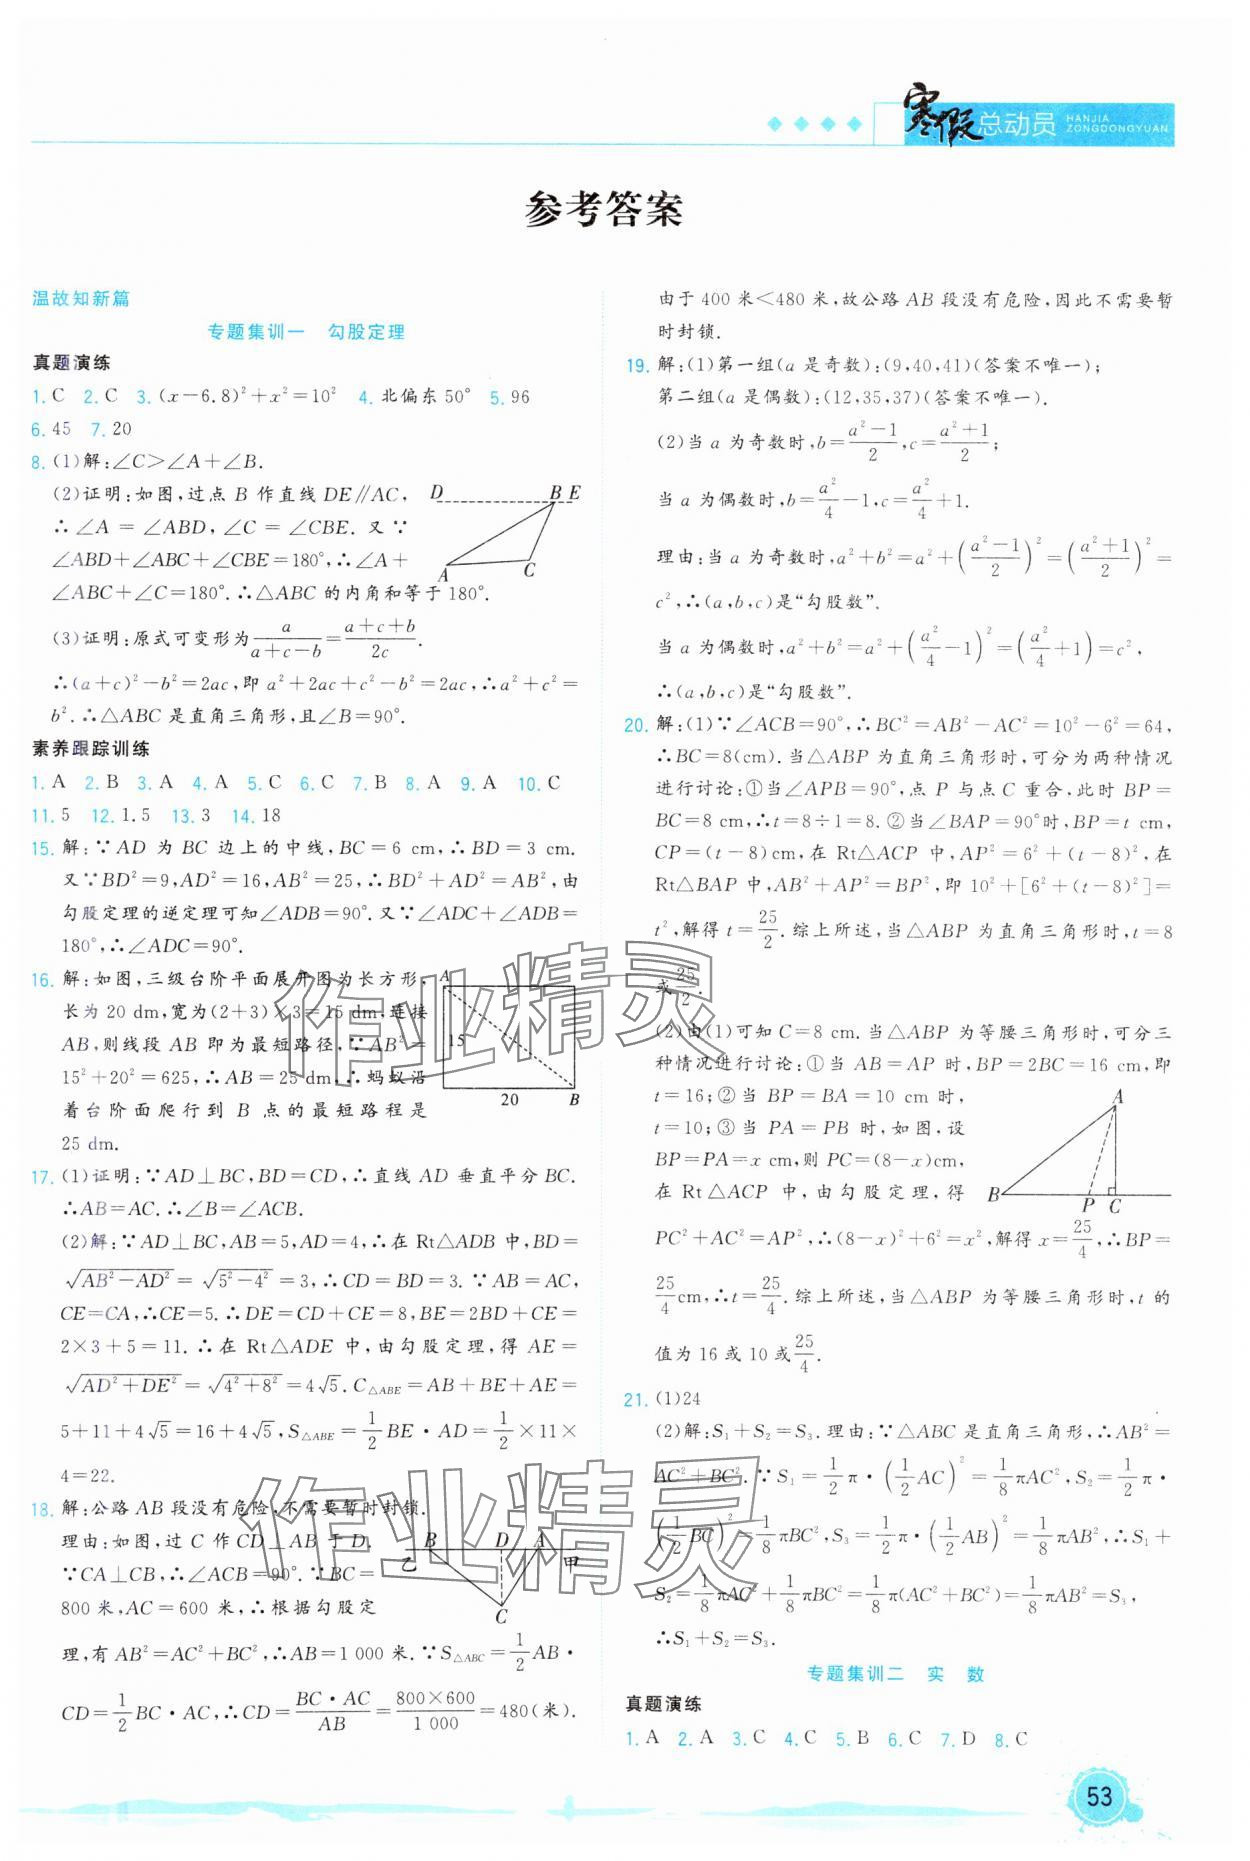 寒假总动员 HANJIA ZONGDONGYUAN
参考答案
温故知新篇
专题集训一 勾股定理
真题演练
1. C 2. C 3. (x-6.8)²+x²=10² 4. 北偏东50° 5. 96
6. 45 7. 20
8. (1)解:∠C>∠A+∠B.
(2)证明:如图,过点 B 作直线 DE∥AC,
∴∠A=∠ABD,∠C=∠CBE. 又∵
∠ABD+∠ABC+∠CBE=180°,∴∠A+
∠ABC+∠C=180°.∴△ABC 的内角和等于180°.
D B E
A C
(3)证明:原式可变形为a/(a+c-b)=(a+c+b)/2c.
∴(a+c)²-b²=2ac,即 a²+2ac+c²-b²=2ac,∴a²+c²=
b².∴△ABC 是直角三角形,且∠B=90°.
素养跟踪训练
1. A 2. B 3. A 4. A 5. C 6. C 7. B 8. A 9. A 10. C
11. 5 12. 1.5 13. 3 14. 18
15. 解:∵AD 为 BC 边上的中线,BC=6 cm,∴BD=3 cm.
又∵BD²=9,AD²=16,AB²=25,∴BD²+AD²=AB²,由
勾股定理的逆定理可知∠ADB=90°.又∵∠ADC+∠ADB=
180°,∴∠ADC=90°.
16. 解:如图,三级台阶平面展开图为长方形,
长为 20 dm,宽为(2+3)×3=15 dm,连接
AB,则线段 AB 即为最短路径,∵AB²=
15²+20²=625,∴AB=25 dm,∴蚂蚁沿
着台阶面爬行到 B 点的最短路程是
25 dm.
A
15
20 B
17. (1)证明:∵AD⊥BC,BD=CD,∴直线 AD 垂直平分 BC.
∴AB=AC.∴∠B=∠ACB.
(2)解:∵AD⊥BC,AB=5,AD=4,∴在 Rt△ADB 中,BD=
√(AB²-AD²)=√(5²-4²)=3,∴CD=BD=3.∵AB=AC,
CE=CA,∴CE=5.∴DE=CD+CE=8,BE=2BD+CE=
2×3+5=11.∴在 Rt△ADE 中,由勾股定理,得 AE=
√(AD²+DE²)=√(4²+8²)=4√5.C△ABE=AB+BE+AE=
5+11+4√5=16+4√5,S△ABE=1/2BE·AD=1/2×11×
4=22.
18. 解:公路 AB 段没有危险,不需要暂时封锁.
理由:如图,过 C 作 CD⊥AB 于 D.
∵CA⊥CB,∴∠ACB=90°.∵BC=
800 米,AC=600 米,∴根据勾股定
B D A
乙 甲
C
理,有 AB²=AC²+BC²,∴AB=1 000 米.∵S△ABC=1/2AB·
CD=1/2BC·AC,∴CD=BC·AC/AB=800×600/1 000=480(米).
由于 400 米<480 米,故公路 AB 段没有危险,因此不需要暂
时封锁.
19. 解:(1)第一组(a 是奇数):(9,40,41)(答案不唯一);
第二组(a 是偶数):(12,35,37)(答案不唯一).
(2)当 a 为奇数时,b=(a²-1)/2,c=(a²+1)/2;
当 a 为偶数时,b=a²/4-1,c=a²/4+1.
理由:当 a 为奇数时,a²+b²=a²+((a²-1)/2)²=((a²+1)/2)²=
c²,∴(a,b,c)是“勾股数”.
当 a 为偶数时,a²+b²=a²+(a²/4-1)²=(a²/4+1)=c²,
∴(a,b,c)是“勾股数”.
20. 解:(1)∵∠ACB=90°,∴BC²=AB²-AC²=10²-6²=64,
∴BC=8(cm).当△ABP 为直角三角形时,可分为两种情况
进行讨论:①当∠APB=90°,点 P 与点 C 重合,此时 BP=
BC=8 cm,∴t=8÷1=8.②当∠BAP=90°时,BP=t cm,
CP=(t-8)cm,在 Rt△ACP 中,AP²=6²+(t-8)²,在
Rt△BAP 中,AB²+AP²=BP²,即 10²+[6²+(t-8)²]=
t²,解得 t=25/2.综上所述,当△ABP 为直角三角形时,t=8
或25/2.
(2)由(1)可知 C=8 cm.当△ABP 为等腰三角形时,可分三
种情况进行讨论:①当 AB=AP 时,BP=2BC=16 cm,即
t=16;②当 BP=BA=10 cm 时,
t=10;③当 PA=PB 时,如图,设
BP=PA=x cm,则 PC=(8-x)cm,
在 Rt△ACP 中,由勾股定理,得
A
B P C
PC²+AC²=AP²,∴(8-x)²+6²=x²,解得 x=25/4,∴BP=
25/4cm,∴t=25/4.综上所述,当△ABP 为等腰三角形时,t 的
值为 16 或 10 或25/4.
21. (1)24
(2)解:S₁+S₂=S₃.理由:∵△ABC 是直角三角形,∴AB²=
AC²+BC².∵S₁=1/2π·(1/2AC)²=1/8πAC²,S₂=1/2π·
(1/2BC)²=1/8πBC²,S₃=1/2π·(1/2AB)²=1/8πAB²,∴S₁+
S₂=1/8πAC²+1/8πBC²=1/8π(AC²+BC²)=1/8πAB²=S₃,
∴S₁+S₂=S₃.
专题集训二 实 数
真题演练
1. A 2. A 3. C 4. C 5. B 6. C 7. D 8. C
作业精灵
作业精灵
53